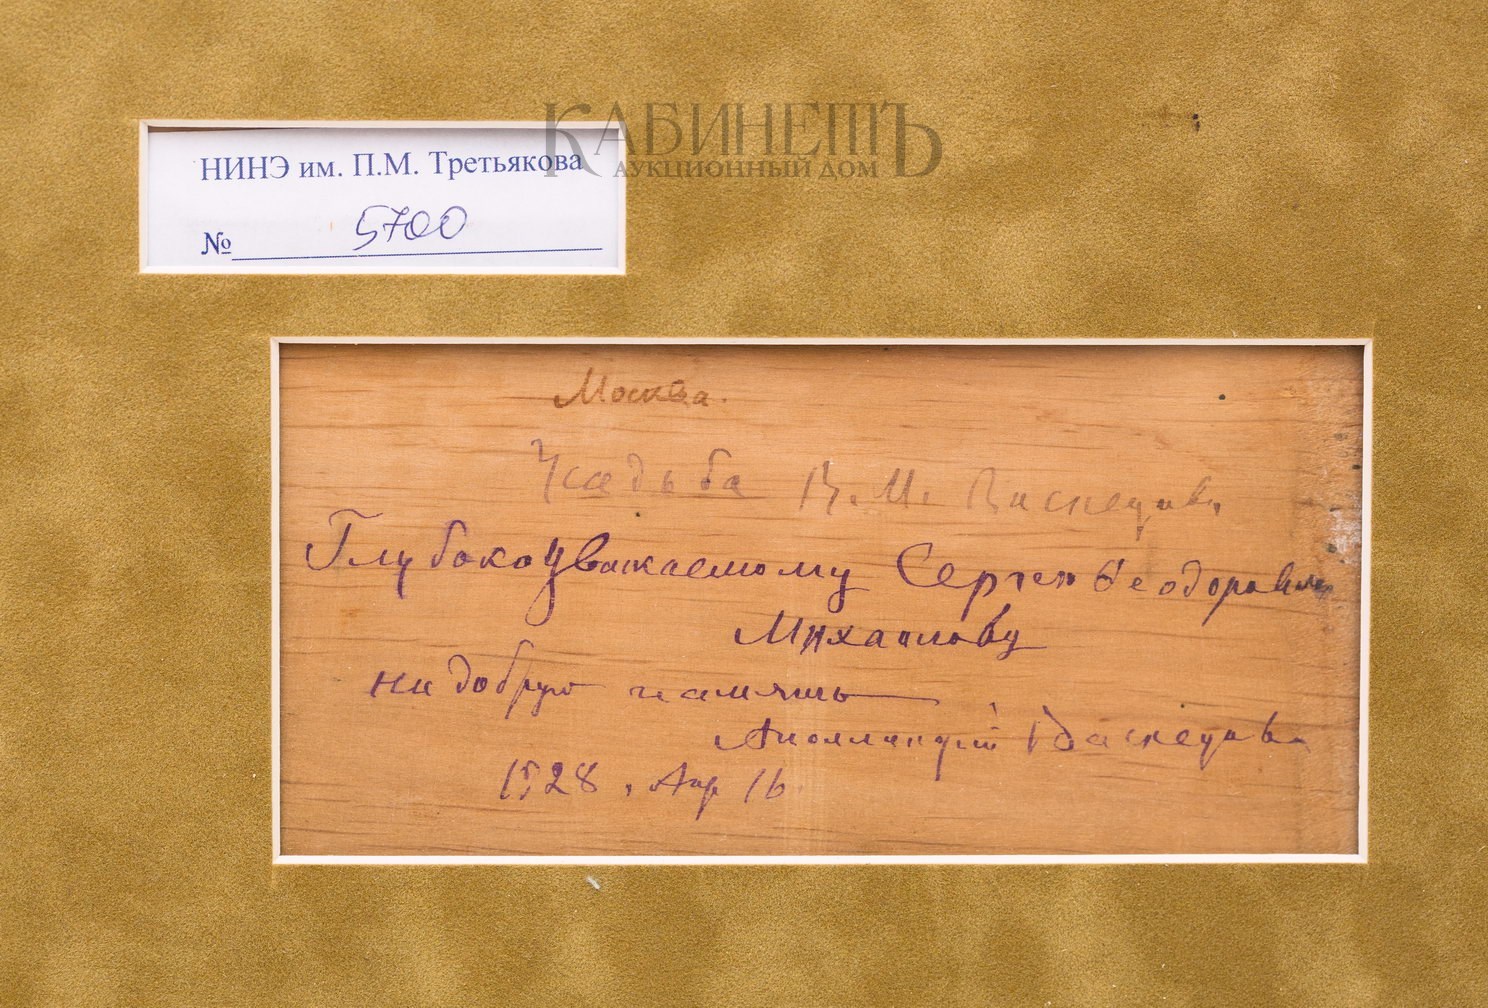 КАБИНЕТЪ
АУКЦИОННЫЙ ДОМ
НИНЭ им. П.М. Третьякова
№ 5700
Москва.
Усадьба В. М. Васнецова
Глубокоуважаемому Сергею Феодоровичу
Михайлову
на добрую память
Аполлинарий Васнецов
1928, Апр 16